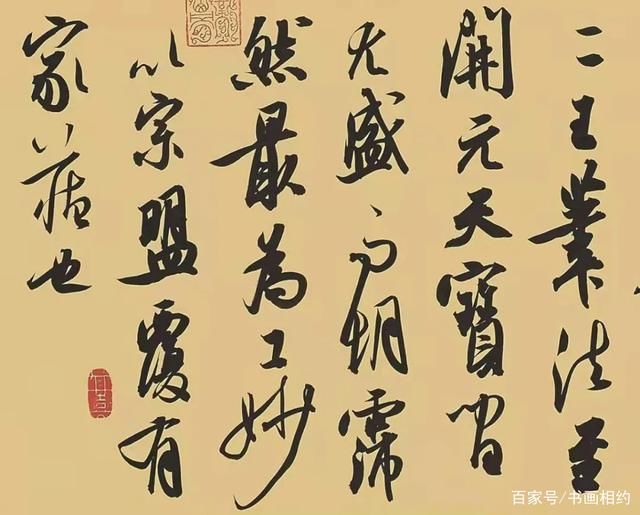 二王業法至
開元天寶間
尤盛而胡霈
然最為工妙
以宗盟覆有
家也
百家号/书画相约